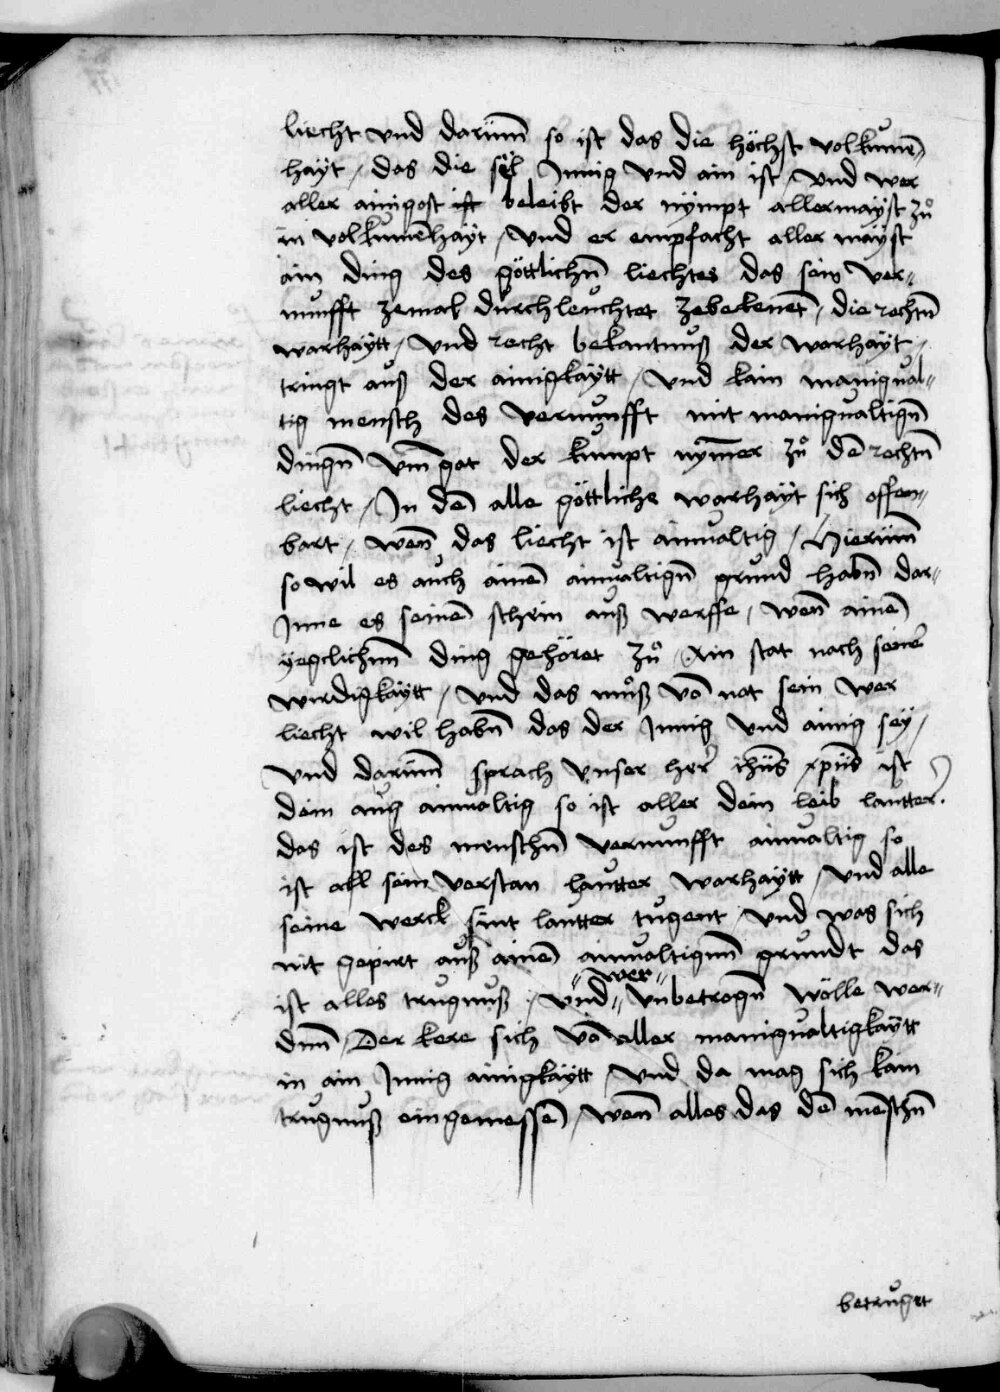 liecht vnd darumm so ist das die höchst volkumen-
hayt / das die sel Innig vnd ain ist / vnd wer
aller ainigost ist beleibt der nympt allermayst zů
in volkumēhayt / vnd er empfacht aller mayst
ain ding des göttlichn̄ liechtes das sein ver-
nunfft zemal durchleuchtet zebekenēt / die rechtn̄
warhaytt / vnd recht bekantnuß der warhayt /
tringt auß der ainigkaytt / vnd kain manigual-
tig mensch des vernunfft mit manigualtign̄
dingn̄ vm̄ gat der kumpt nym̄er zů dē rechtn̄
liecht / In dē alle göttliche warhayt sich offen-
bart / wen̄ das liecht ist ainualtig / Hierumm
so wil es auch ainē ainualtign̄ grund habn̄ dar-
Inne es seinē schein auß werffe / wen̄ ainē
yegclichnn̄ ding gehöret zů / Ain stat nach seiner
wirdigkaytt / vnd das můß vō not sein wer
liecht wil habn̄ das der Innig vnd ainig sey /
vnd darumm sprach vnser her ihūs xpūs ist
dein aug ainualtig so ist aller dein leib lautter.
das ist des menschn̄ vernunfft ainualtig so
ist all sein verstan lautter warhaytt / vnd alle
seine werck sint lautter tugent / vnd was sich
nit gepirt auß ainē ainualtignn̄ grundt das
ist alles trugnuß / vnd wer vnbetrogn̄ wölle wer-
dnn̄ / Der kere sich vō aller manigualtigkaytt
in ain Innig ainigkaytt / vnd da mag sich kain
trugnuß eingemessē / wen̄ alles das dē mēschn̄
betruget